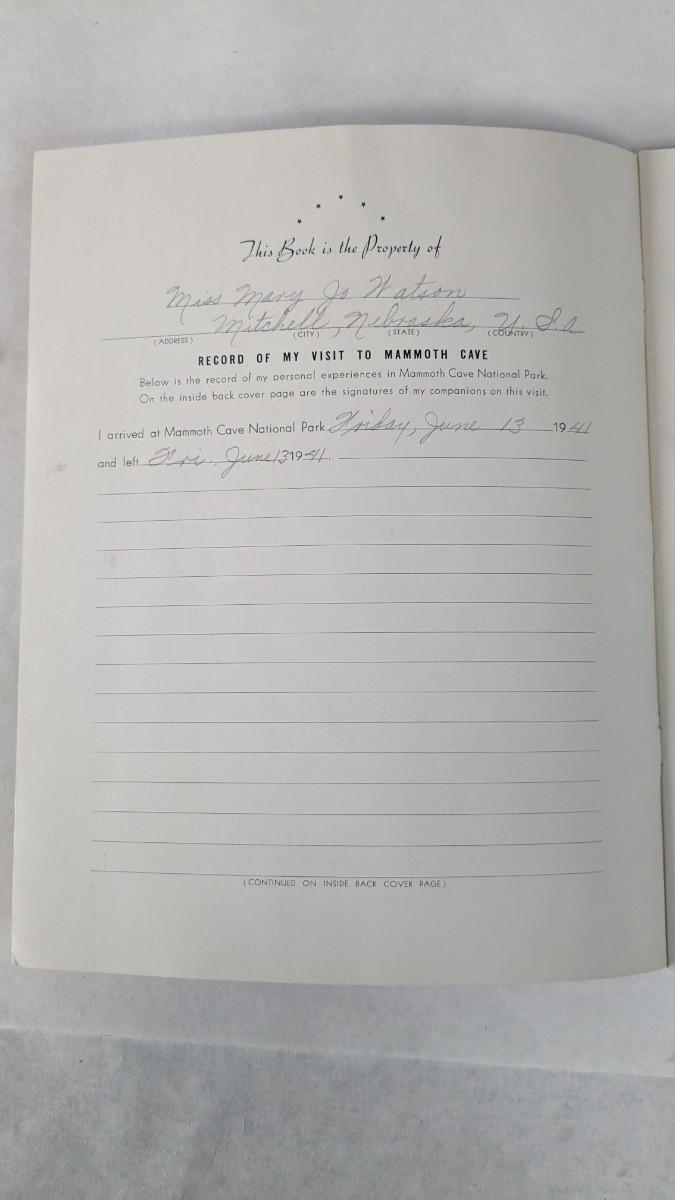 This Book is the Property of
Miss Mary Jo Watson
Mitchell, Nebraska, U.S.a
(ADDRESS) (CITY) (STATE) (COUNTRY)
RECORD OF MY VISIT TO MAMMOTH CAVE
Below is the record of my personal experiences in Mammoth Cave National Park.
On the inside back cover page are the signatures of my companions on this visit.
I arrived at Mammoth Cave National Park Friday, June 13 1941
and left Fri. June 13 1941.
(CONTINUED ON INSIDE BACK COVER PAGE)